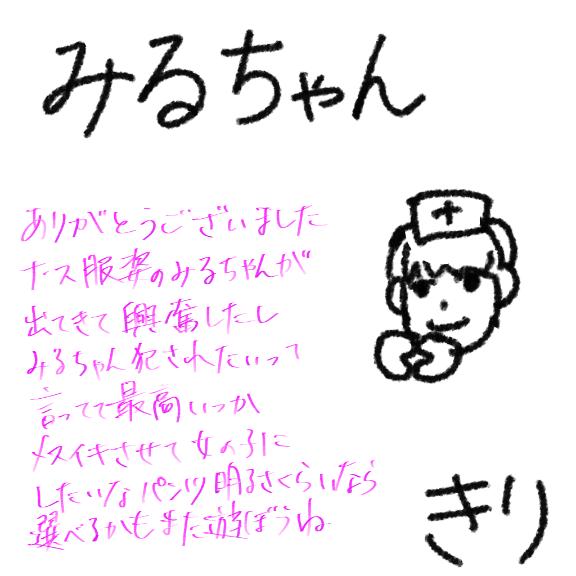 みるちゃん
ありがとうございました
ナース服姿のみるちゃんが
出てきて興奮したし
みるちゃん犯されたいって
言ってて最高いつか
メスイキさせて女の子に
したいなパンツ明るさくらいなら
選べるかもまた遊ぼうね
きり